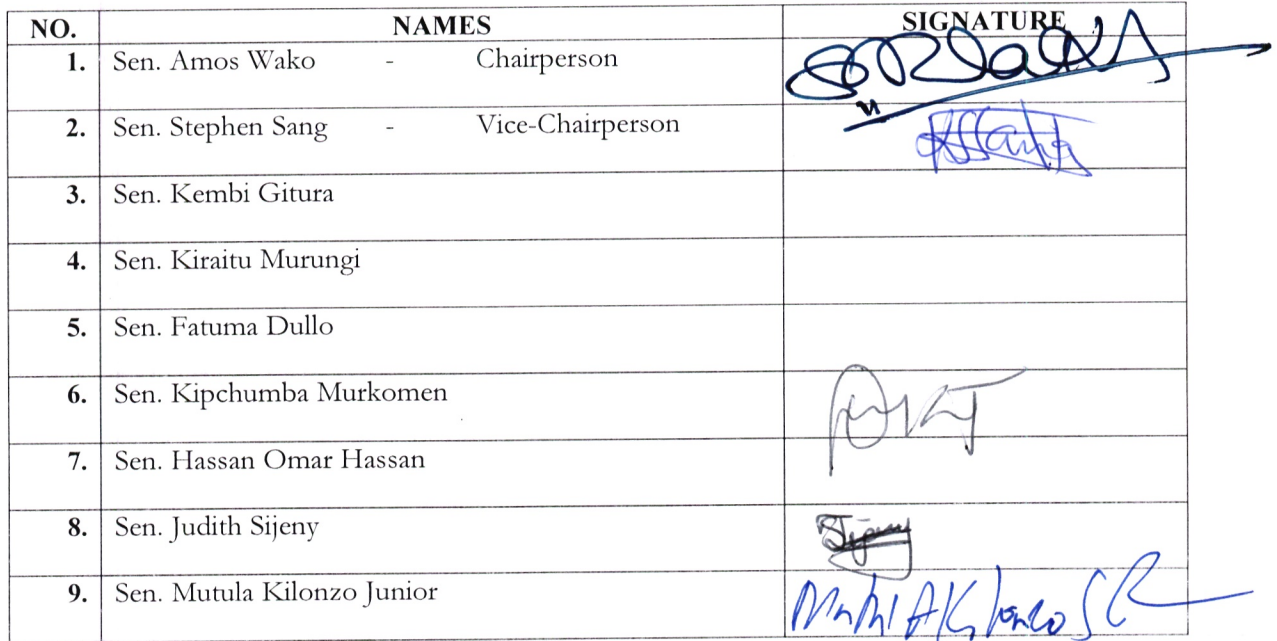 NO. NAMES SIGNATURE
1. Sen. Amos Wako - Chairperson
2. Sen. Stephen Sang - Vice-Chairperson
3. Sen. Kembi Gitura
4. Sen. Kiraitu Murungi
5. Sen. Fatuma Dullo
6. Sen. Kipchumba Murkomen
7. Sen. Hassan Omar Hassan
8. Sen. Judith Sijeny
9. Sen. Mutula Kilonzo Junior